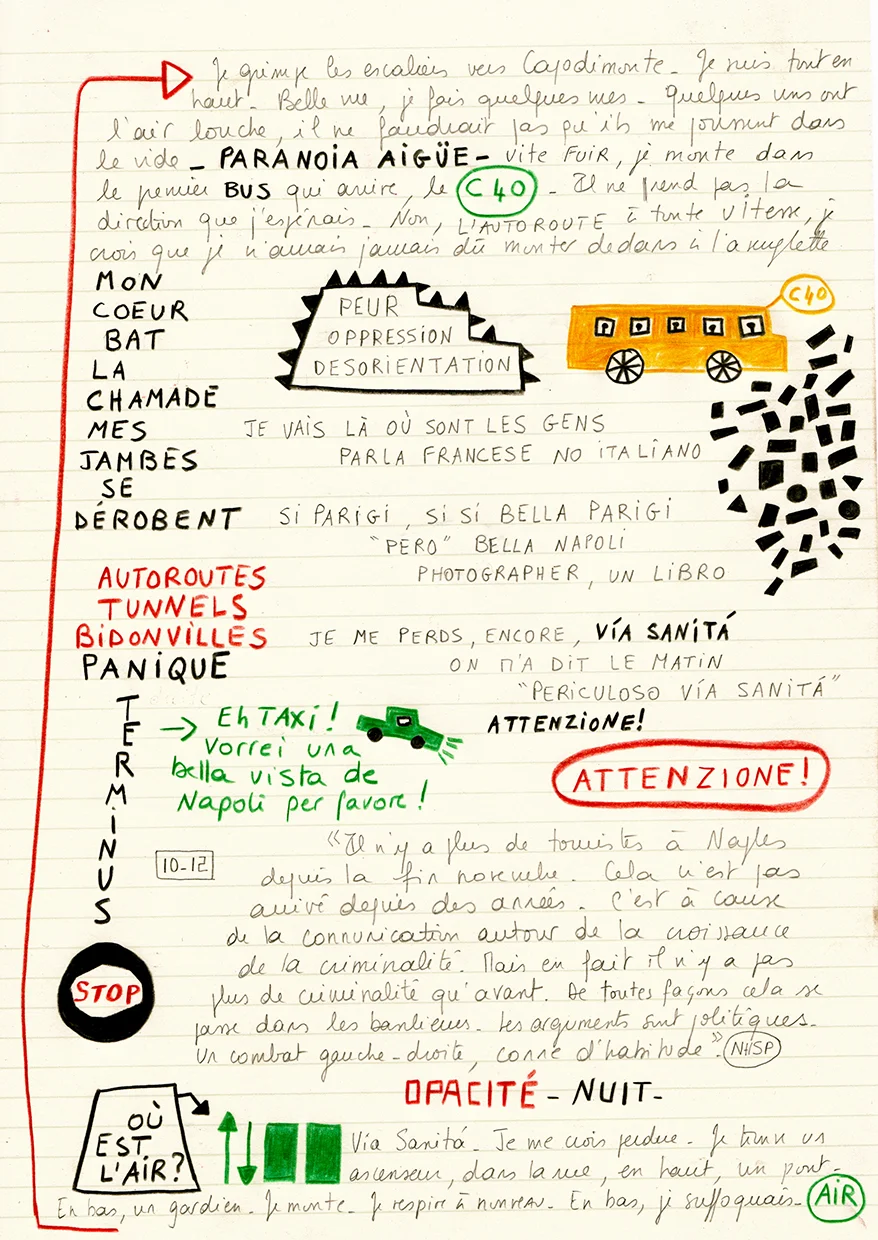 Je grimpe les escaliers vers Capodimonte_ Je suis tout en
haut_ Belle vue, je fais quelques vues_ Quelques uns ont
l'air louche, il ne faudrait pas qu'ils me poussent dans
le vide_ PARANOiA AiGÜE_ vite FUiR, je monte dans
le premier BUS qui arrive, le C40_ Il ne prend pas la
direction que j'espérais_ Non, L'AUTOROUTE à toute vitesse, je
crois que je n'aurais jamais dû monter dedans à l'aveuglette
MON
COEUR
BAT
LA
CHAMADE
MES
JAMBES
SE
DÉROBENT
PEUR
OPPRESSiON
DESORiENTATiON
C40
JE VAiS LÀ OÙ SONT LES GENS
PARLA FRANCESE NO iTALiANO
Si PARiGi, Si Si BELLA PARiGi
"PERO" BELLA NAPOLi
PHOTOGRAPHER, UN LiBRO
AUTOROUTES
TUNNELS
BiDONViLLES
PANiQUE
JE ME PERDS, ENCORE, VÍA SANiTÁ
ON M'A DiT LE MATiN
"PERiCULOSO VÍA SANiTÁ"
ATTENZiONE!
ATTENZiONE!
TERMiNUS
→ Eh TAXi!
Vorrei una
bella vista de
Napoli per favore!
10-12
"Il n'y a plus de touristes à Naples
depuis la fin novembre. Cela n'est pas
arrivé depuis des années. C'est à cause
de la communication autour de la croissance
de la criminalité. Mais en fait il n'y a pas
plus de criminalité qu'avant. De toutes façons cela se
passe dans les banlieues_ Les arguments sont politiques_
Un combat gauche-droite, comme d'habitude".
STOP
OPACiTÉ - NUiT-
OÙ
EST
L'AiR?
Vía Sanitá_ Je me crois perdue_ Je trouve un
ascenseur, dans la rue, en haut, un pont_
En bas, un gardien. Je monte_ Je respire à nouveau_ En bas, je suffoquais_ AiR